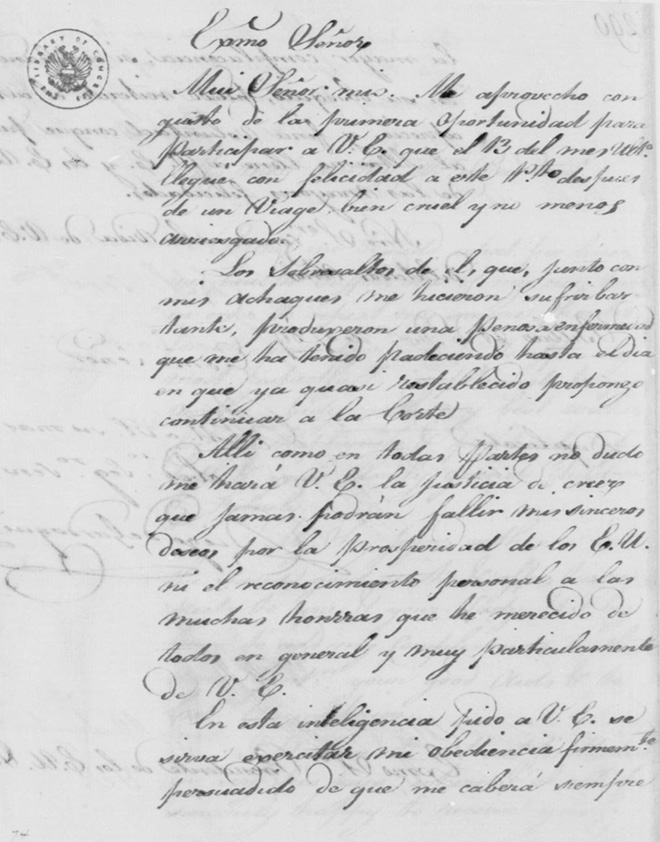 Exmo Señor
Mui Señor mio. Me aprovecho con
gusto de la primera oportunidad para
participar a V. E. que el 13 del mes Ulto.
llegué con felicidad a este Pto. despues
de un Viage, bien cruel y no menos
arriesgado.
Los Sobresaltos de el, que, junto con
mis achaques me hicieron sufrir bas
tante, produxeron una penosa enfermedad
que me ha tenido padeciendo hasta el dia
en que ya quasi restablecido propongo
continuar a la Corte
Alli como en todas partes no dudo
me hará V. E. la justicia de creer
que jamas podrán fallir mis sinceros
deseos por la prosperidad de los E. U.
ni el reconocimiento personal a las
muchas honrras que he merecido de
todos en general y muy particularmente
de V. E.
En esta inteligencia pido a V. E. se
sirva exercitar mi obediencia firmemte.
persuadido de que me caberá siempre